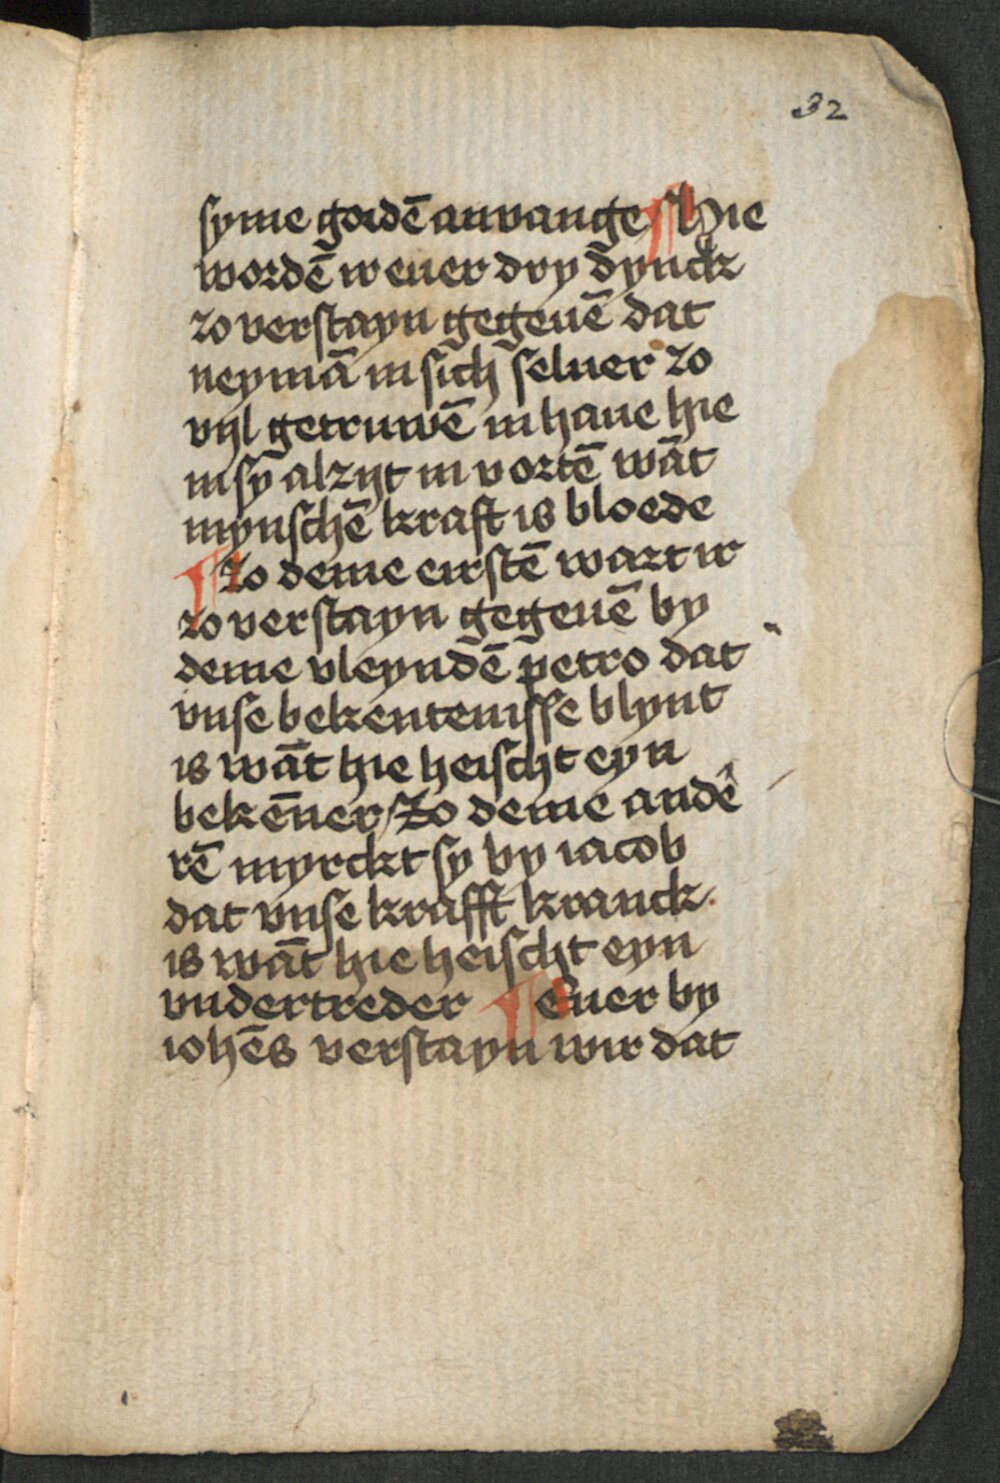 32
syme gordē anvange ¶ Hie
wordē ir euer dry dynck
zo verstayn gegeuē dat
neymā in sich seluer zo
vyl getruwē in haue hie
in sy alzijt in vortē wāt
mynschē kraft is bloede
¶ Zo deme eirstē wart ir
zo verstayn gegeuē by
deme vleyndē petro dat
vnse bekentenisse blynt
is wāt hie heischt eyn
bekēner / Zo deme andē
rē myrckt sy by iacob
dat vnse krafft kranck
is wāt hie heischt eyn
vndertreder ¶ Euer by
iohēs verstayn wir dat